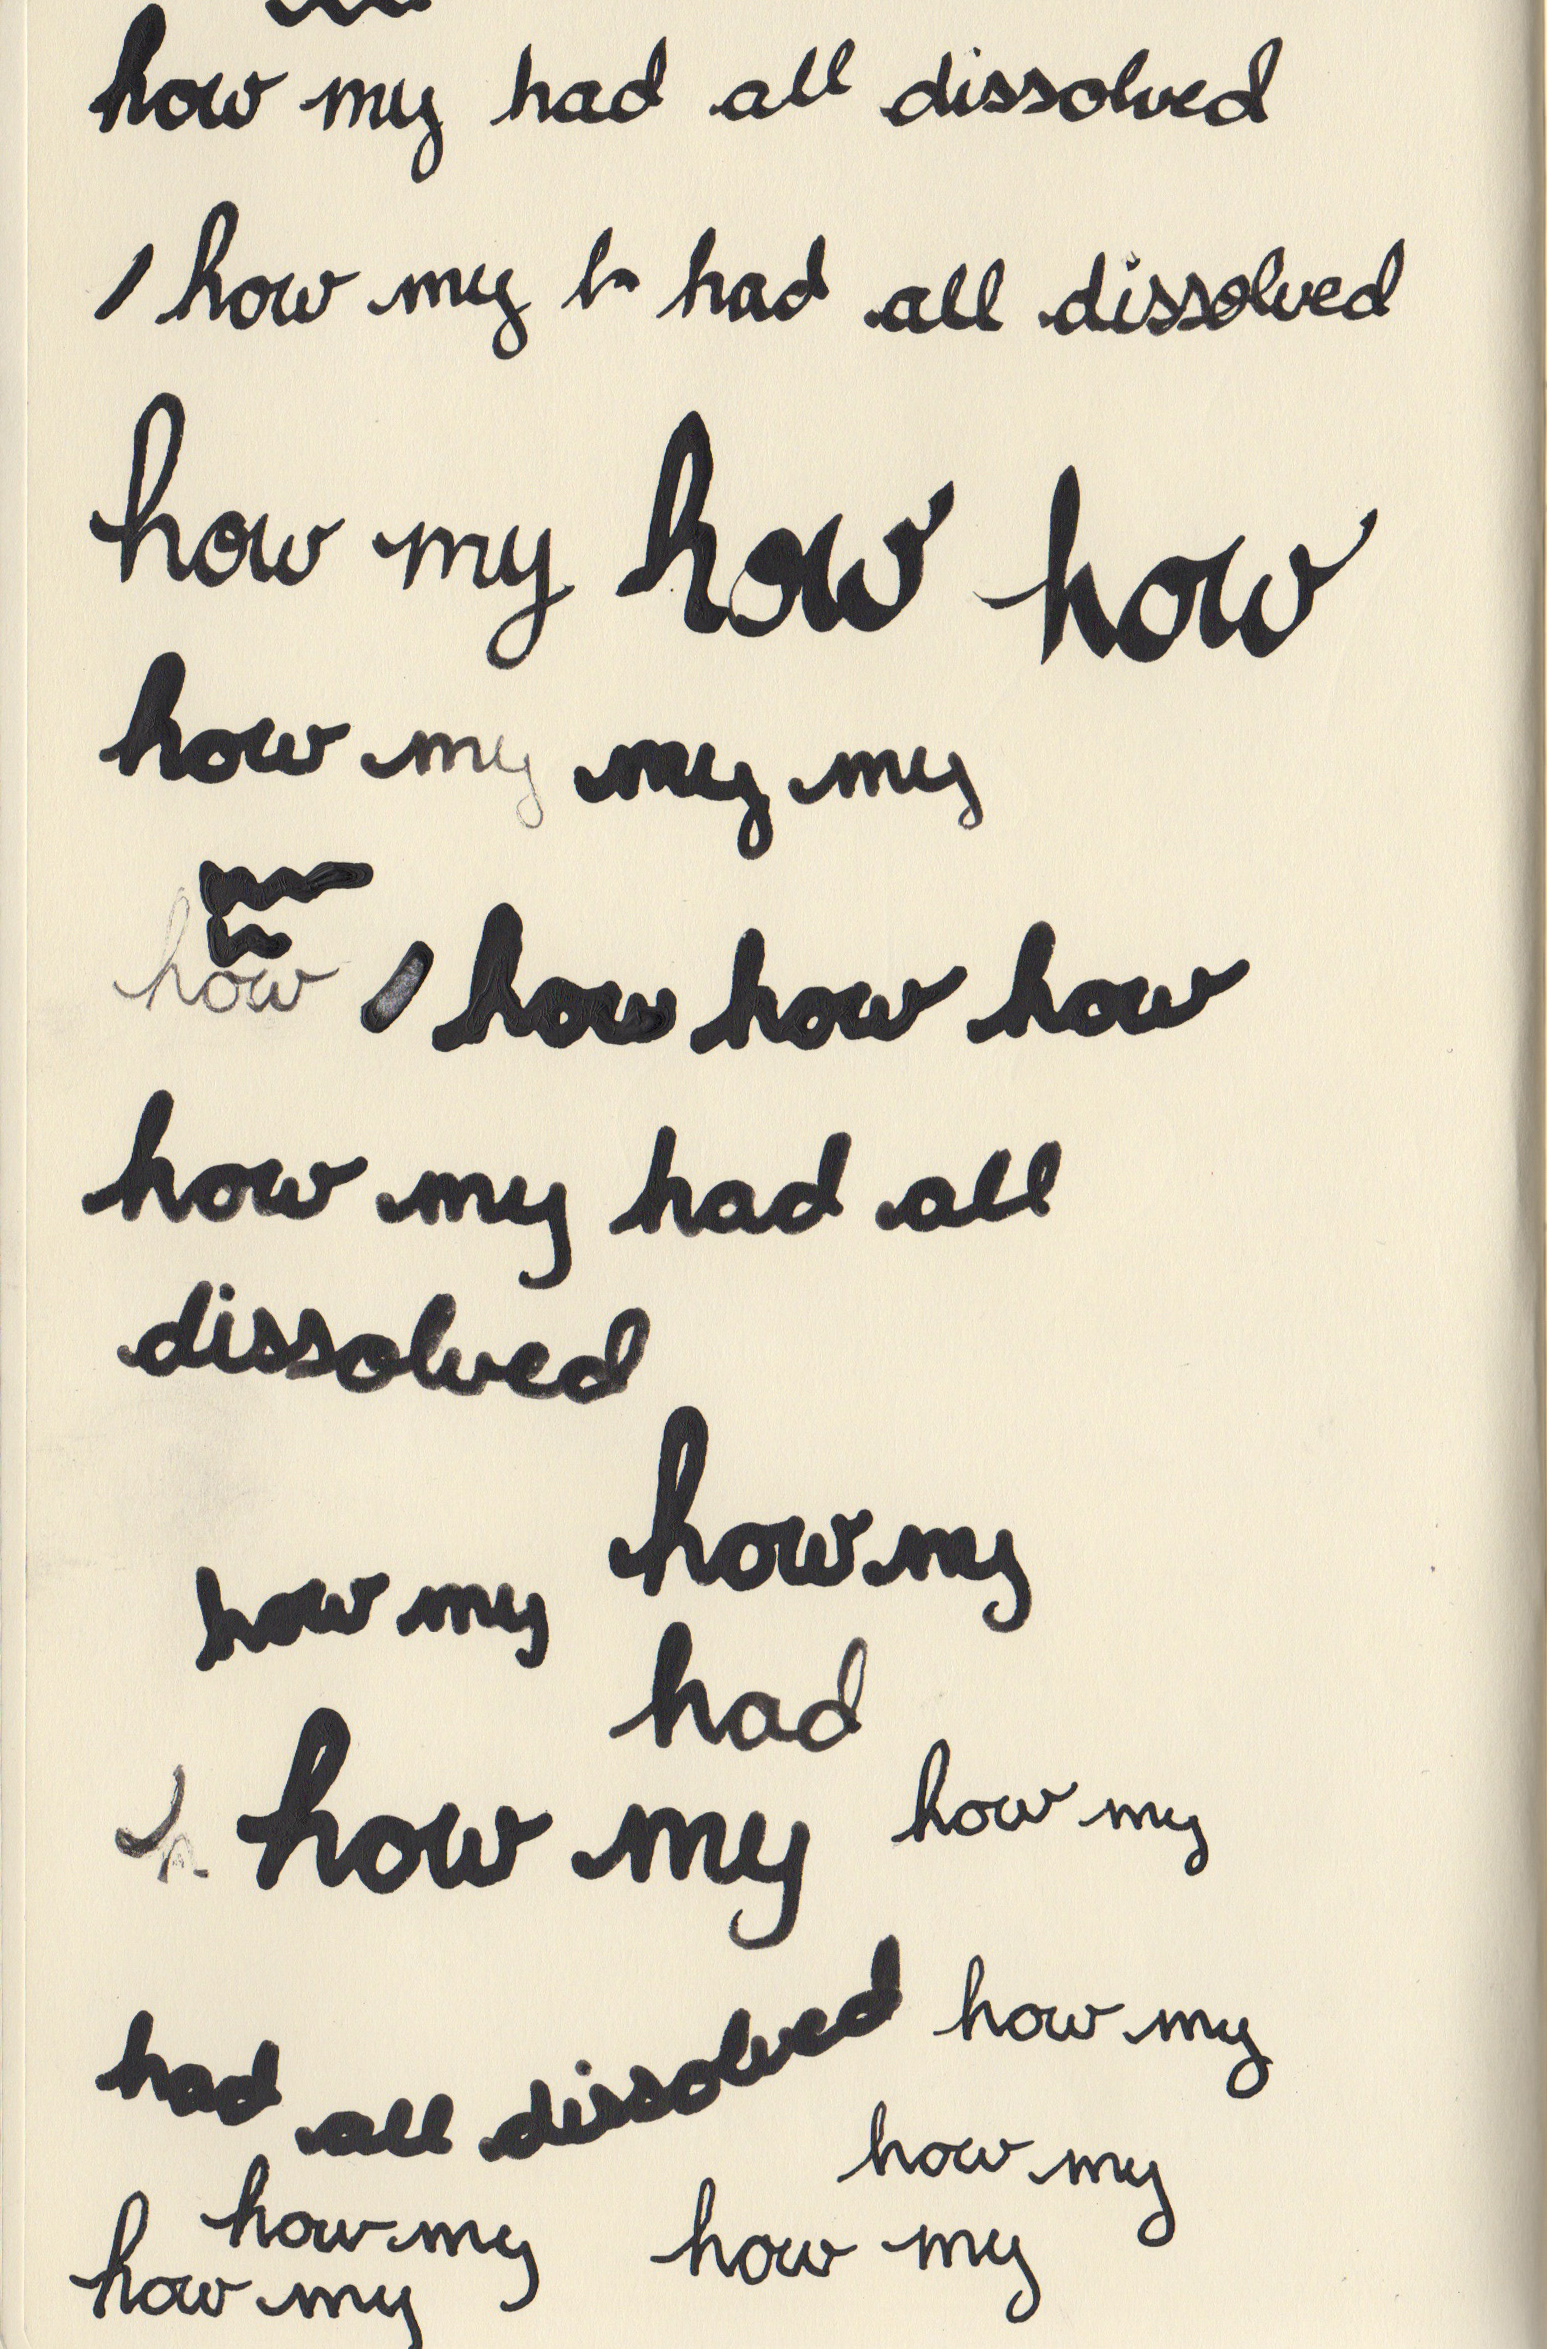 how my had all dissolved
how my h had all dissolved
how my how how
how my my my
how how how how
how my had all
dissolved
how my how my
had
h how my how my
had all dissolved how my
how my
how my how my
how my